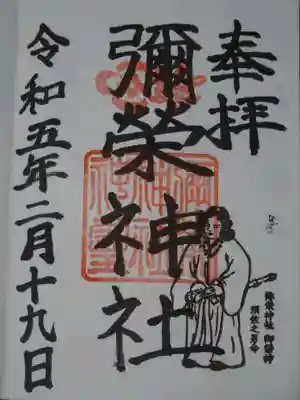 奉拝
彌榮神社
令和五年二月十九日
彌榮神社 御祭神
須佐之男命